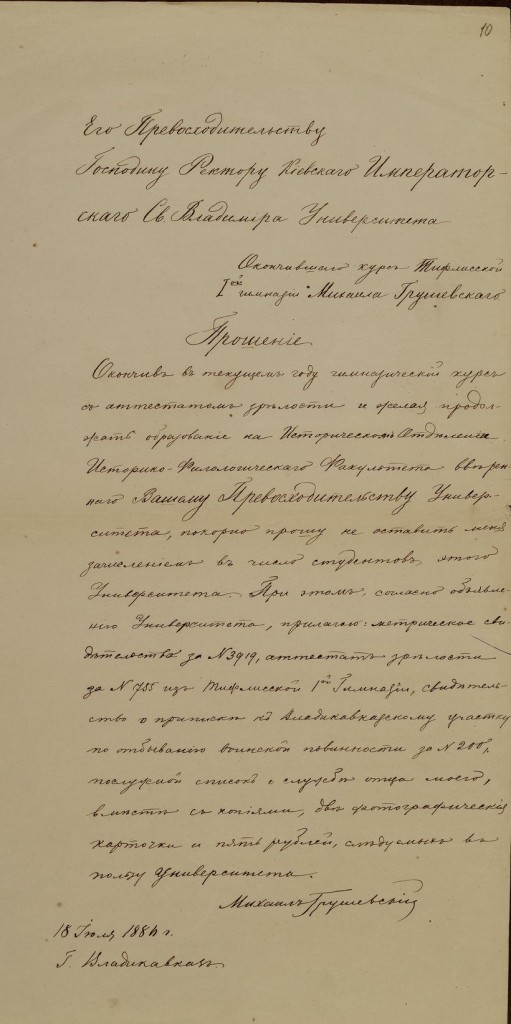 10
Его Превосходительству
Господину Ректору Кіевскаго Император-
скаго Св. Владиміра Университета
Окончившаго курсъ Тифлисской
Iой гимназіи Михаила Грушевскаго
Прошеніе
Окончивъ въ текущемъ году гимназическій курсъ
съ аттестатомъ зрѣлости и желая продол-
жать образованіе на Историческомъ Отдѣленіи
Историко-Филологическаго Факультета ввѣрен-
наго Вашему Превосходительству Универ-
ситета, покорно прошу не оставить меня
зачисленіемъ въ число студентовъ этого
Университета. При этомъ, согласно объявле-
нію Университета, прилагаю: метрическое сви-
дѣтельство за N 3919, аттестатъ зрѣлости
за N 755 изъ Тифлисской 1ой Гимназіи, свидѣтель-
ство о припискѣ къ Владикавказскому участку
по отбыванію воинской повинности за N 200,
послужной списокъ о службѣ отца моего,
вмѣстѣ съ копіями, двѣ фотографическія
карточки и пять рублей, слѣдуемыхъ въ
пользу Университета.
Михаилъ Грушевскій
18 Іюля 188 г.
Г. Владикавказъ